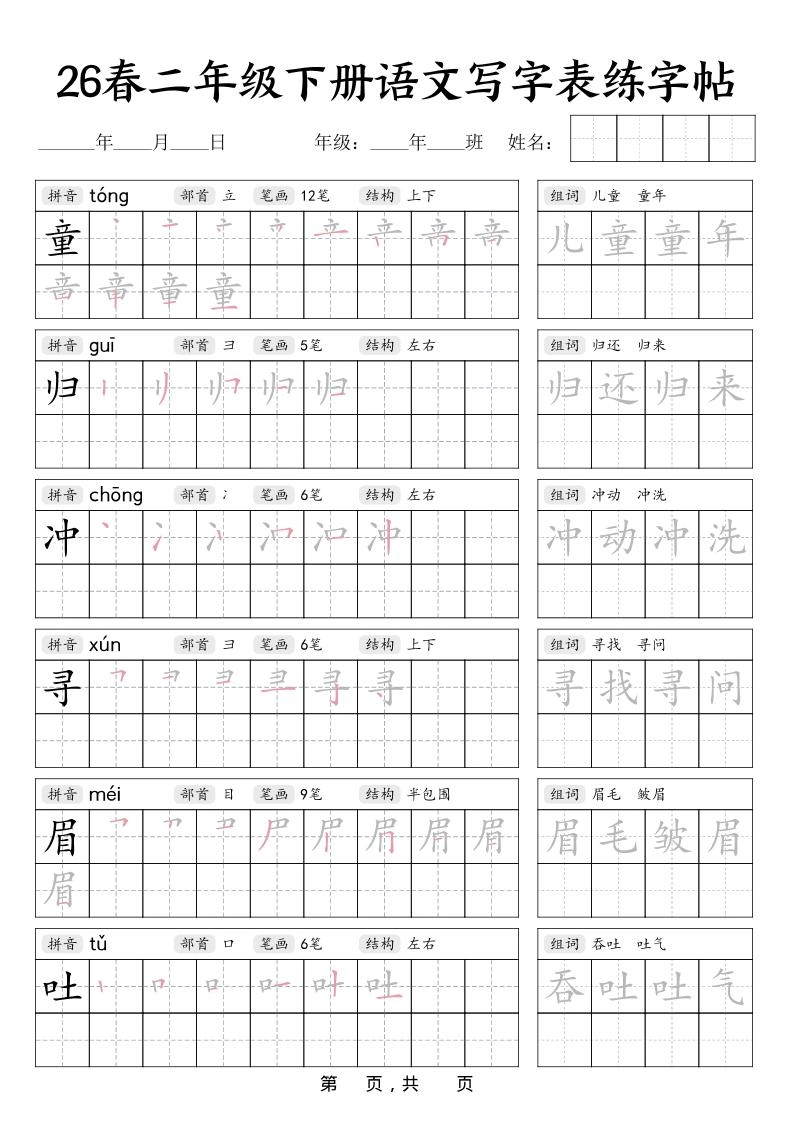 26春二年级下册语文写字表练字帖
______年____月____日 年级：____年____班 姓名：
拼音 tóng 部首 立 笔画 12笔 结构 上下 组词 儿童 童年
童 儿童童年
拼音 guī 部首 彐 笔画 5笔 结构 左右 组词 归还 归来
归 归还归来
拼音 chōng 部首 冫 笔画 6笔 结构 左右 组词 冲动 冲洗
冲 冲动冲洗
拼音 xún 部首 彐 笔画 6笔 结构 上下 组词 寻找 寻问
寻 寻找寻问
拼音 méi 部首 目 笔画 9笔 结构 半包围 组词 眉毛 皱眉
眉 眉毛皱眉
眉
拼音 tǔ 部首 口 笔画 6笔 结构 左右 组词 吞吐 吐气
吐 吞吐吐气
第 页，共 页